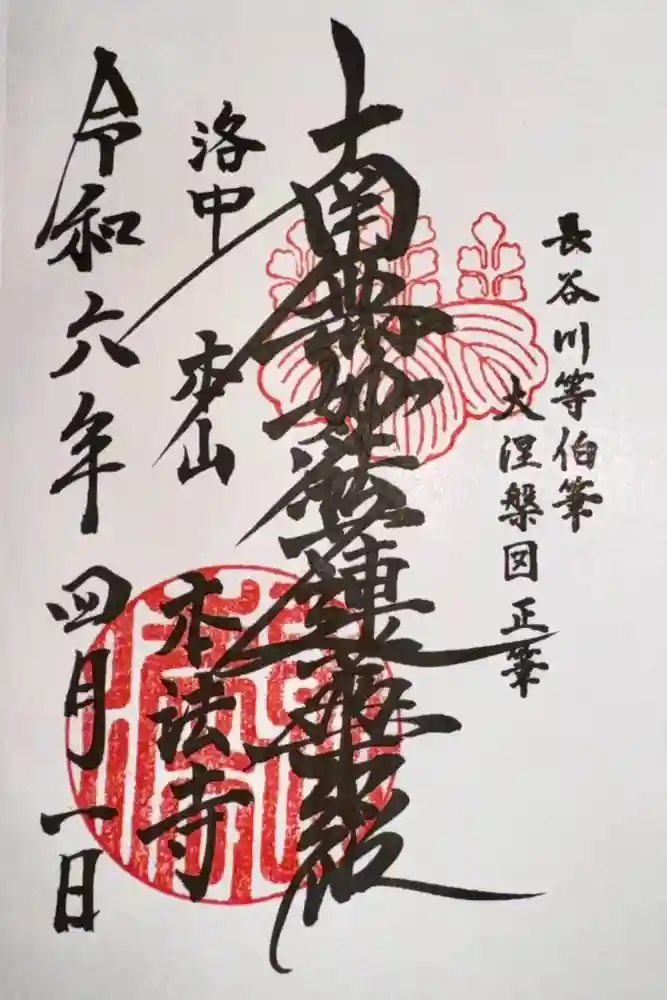 長谷川等伯筆
大涅槃図 正筆
南無妙法蓮華経
洛中 本山 本法寺
令和六年四月一日